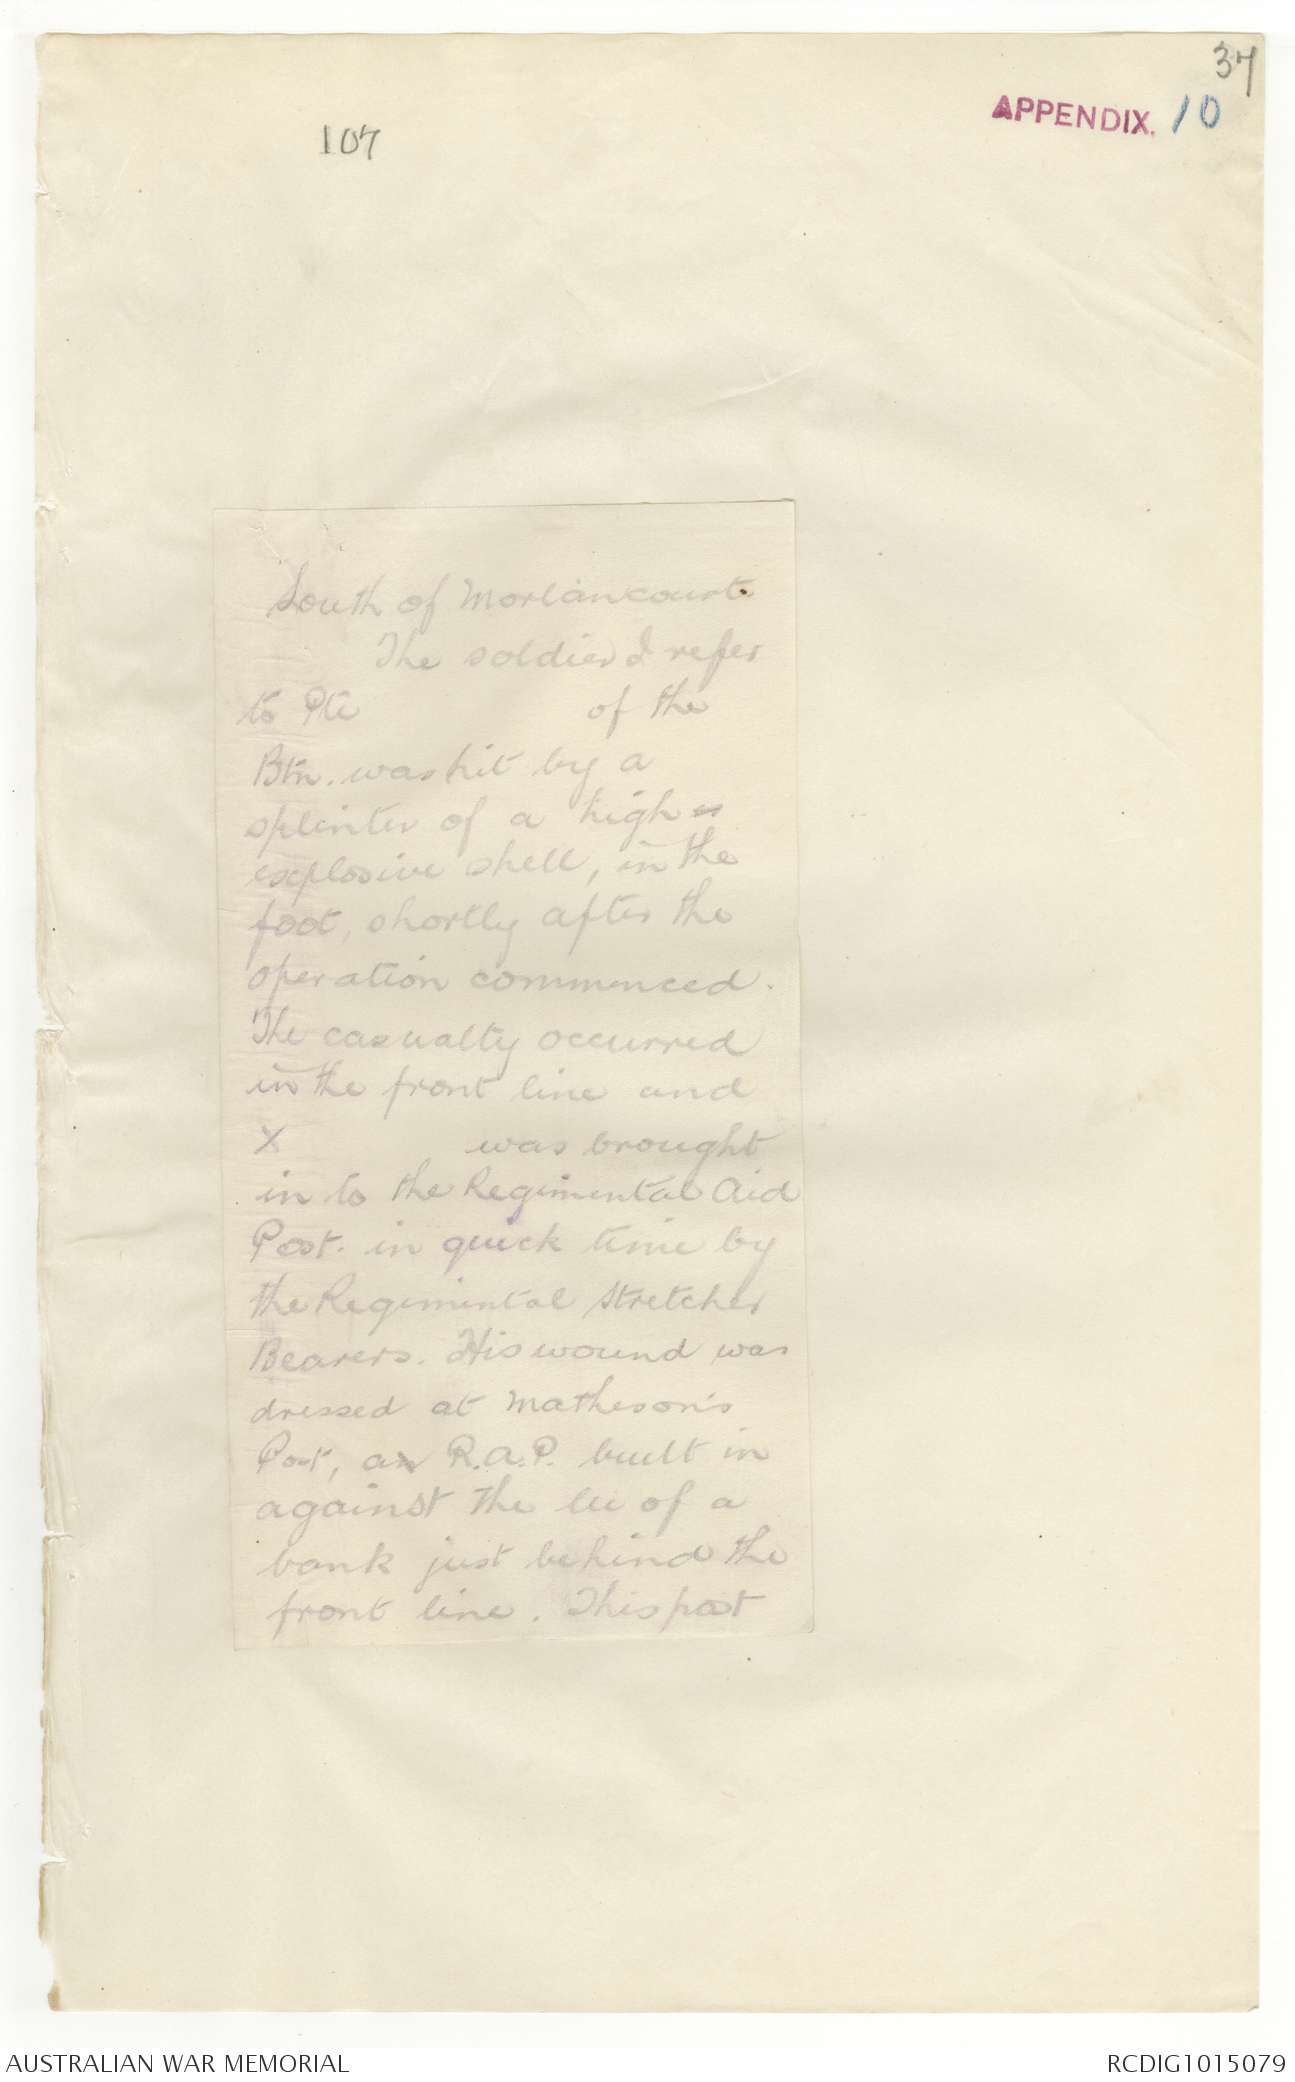 37
APPENDIX. 10
107
South of Morlancourt.
The soldier I refer
to Pte of the
Btn. was hit by a
splinter of a high
explosive shell, in the
foot, shortly after the
operation commenced.
The casualty occurred
in the front line and
X was brought
in to the Regimental Aid
Post. in quick time by
the Regimental Stretcher
Bearers. His wound was
dressed at Matheson's
Post, an R.A.P. built in
against the lee of a
bank just behind the
front line. This post
AUSTRALIAN WAR MEMORIAL
RCDIG1015079